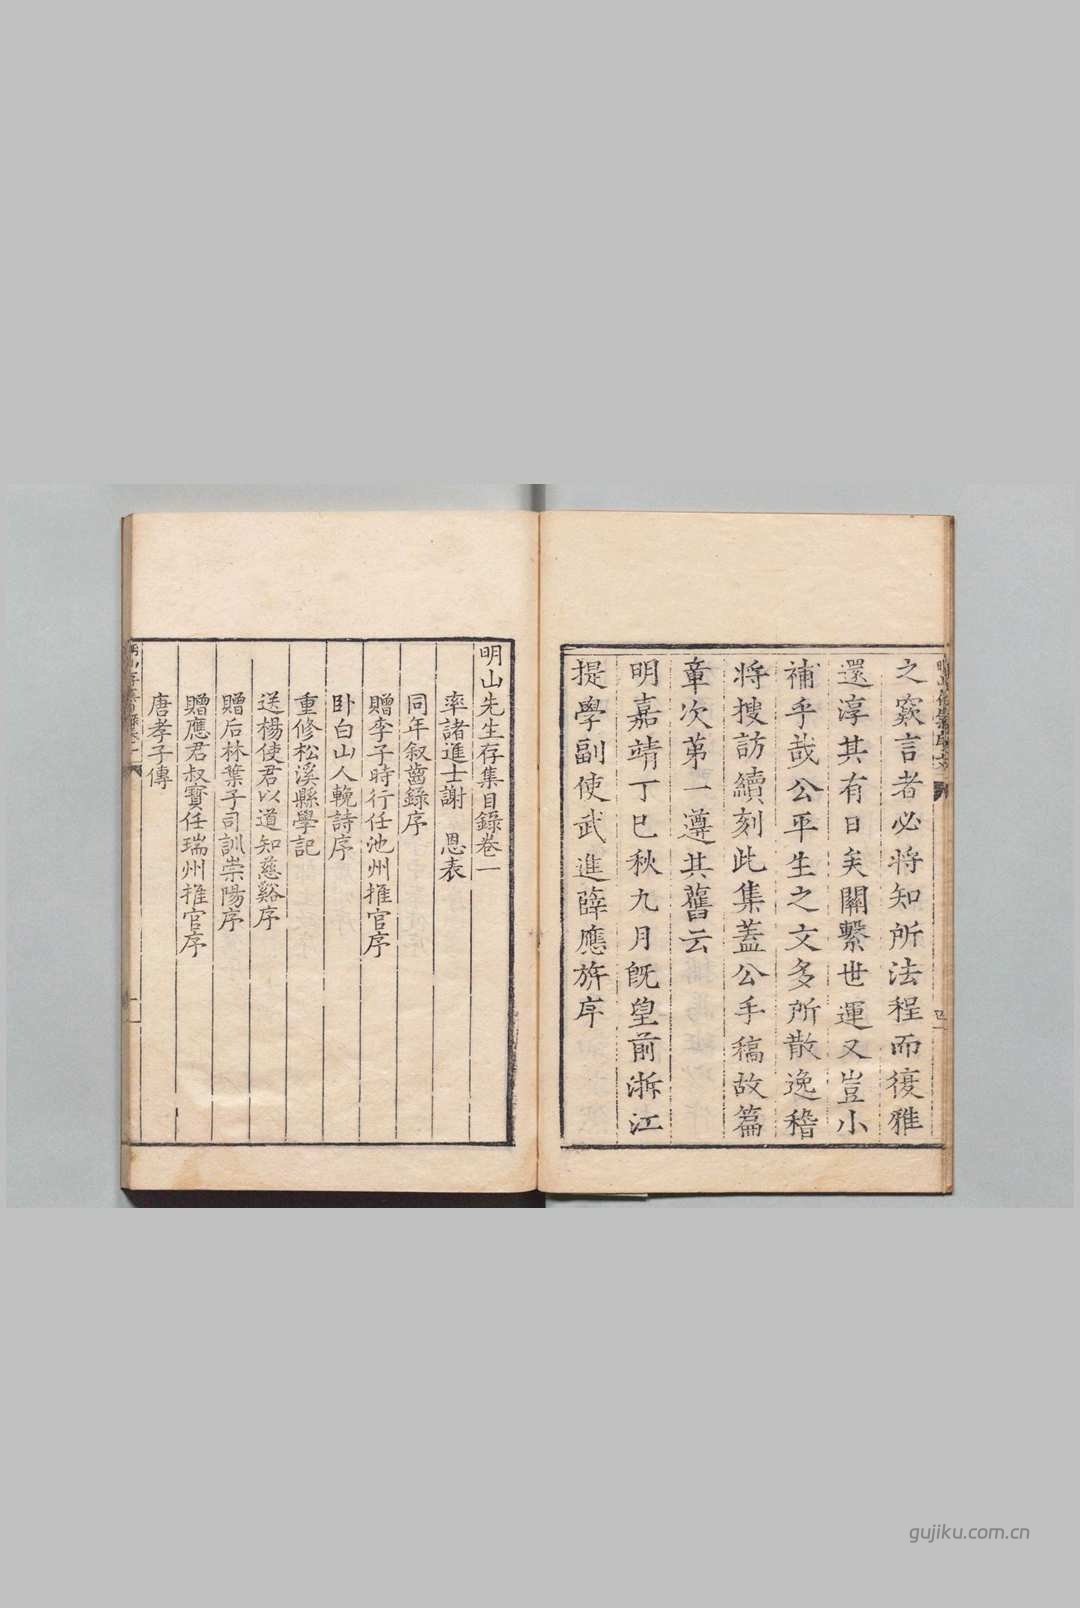 之窾言者必將知所法程而復雅
還淳其有日矣關繫世運又豈小
補乎哉公平生之文多所散逸稽
將搜訪續刻此集蓋公手稿故篇
章次第一遵其舊云
明嘉靖丁巳秋九月旣望前浙江
提學副使武進薛應旂序
明山先生存集目錄卷一
率諸進士謝 恩表
同年叙齒錄序
贈李子時行任池州推官序
卧白山人輓詩序
重修松溪縣學記
送楊使君以道知慈谿序
贈后林葉子司訓崇陽序
贈應君叔寳任瑞州推官序
唐孝子傳
gujiku.com.cn